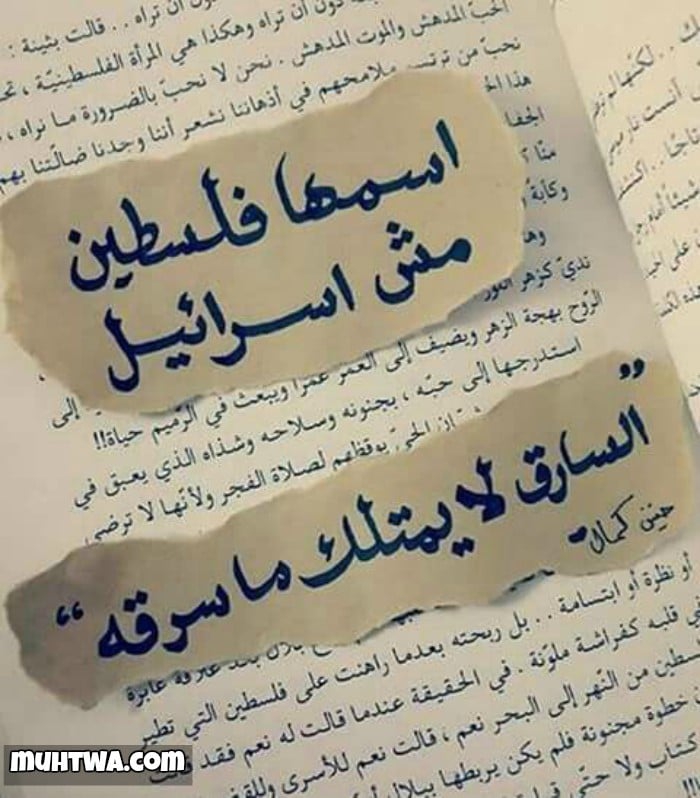 ون أن تراه . . قالت بثينة :
دون أن تراه وهكذا هي المرأة الفلسطينيّة ، تحـ
الحبّ المدهش والموت المدهش . نحن لا نحبّ بالضرورة ما نراه ،
نحبّ من ترتسم ملامحهم في أذهاننا نشعر أننا وجدنا ضالّتنا بهم
هذا
منّا
وكآبة
وهـ
اسمها فلسطين
مش اسرائيل
نديّ كزهر اللوز
الرّوح بهجة الزهر ويضيف إلى العمر عمراً ويبعث في الرّميم حياة!!
إلى
استدرجها إلى حبّه ، بجنونه وسلاحه وشذاه الذي يعبق في
الحيّ يوقظهم لصلاة الفجر ولأنّها لا ترضى
”السارق لا يمتلك ما سرقه“
حنين كمال
علاقة عابرة
أو نظرة أو ابتسامة . . بل ربحته بعدما راهنت على فلسطين التي تطير
في قلبه كفراشة ملوّنة . في الحقيقة عندما قالت له نعم فقد قالت
فلسطين من النّهر إلى البحر نعم ، قالت نعم للأسرى
خطوة مجنونة فلم يكن يربطها ببلال
كتاب ولا حتّى
لكنّها لم
muhtwa.com